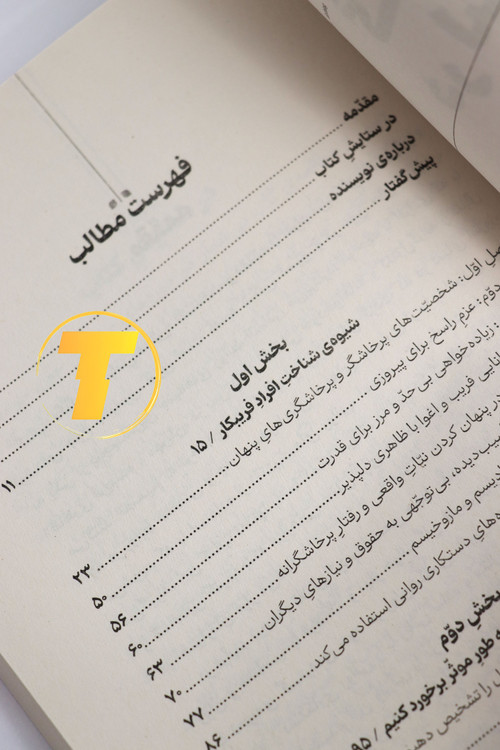 فهرست مطالب
مقدّمه
در ستایشِ کتاب
درباره‌ی نویسنده
پیش‌گفتار
۱۱
بخش اول
شیوه‌ی شناختِ افرادِ فریبکار / ۱۵
اوّل: شخصیّت‌های پرخاشگر و پرخاشگری‌های پنهان
۲۳
دوّم: عزمِ راسخ برای پیروزی
۵۰
زیاده‌خواهی بی‌حدّ و مرز برای قدرت
۵۶
فریب و اغوا با ظاهری دلپذیر
۶۰
در پنهان کردنِ نیّاتِ واقعی و رفتارِ پرخاشگرانه
۶۳
بی‌توجّهی به حقوق و نیازهایِ دیگران
۷۰
و مازوخیسم
۷۷
دستکاری روانی استفاده می‌کند
۸۶
بخشِ دوّم
طورِ موثّر برخورد کنیم / ۹۵
را تشخیص
T